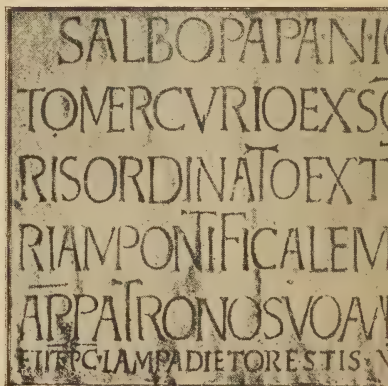 SALBOPAPA·N·IO
TOMERCVRIOEXSC
RISORDINATOEXT
RIAMPONTIFICALEM
ARPPATRONOSVOAM
LAMPADIETORESTIS·V